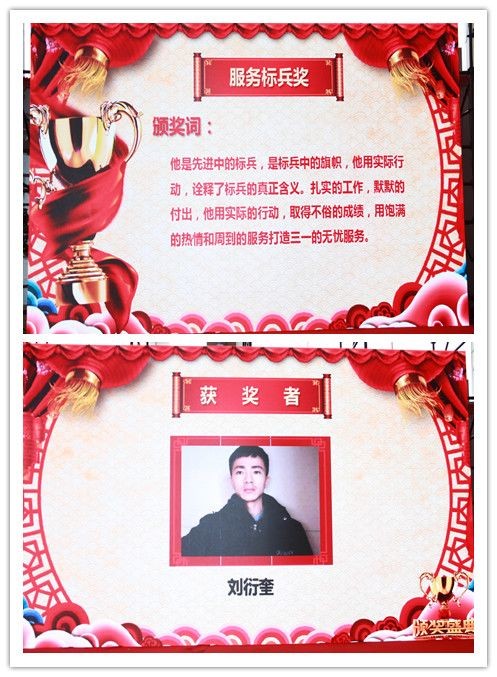 服务标兵奖
颁奖词：
他是先进中的标兵，是标兵中的旗帜，他用实际行
动，诠释了标兵的真正含义。扎实的工作，默默的
付出，他用实际的行动，取得不俗的成绩，用饱满
的热情和周到的服务打造三一的无忧服务。
获奖者
刘衍奎
颁奖盛典